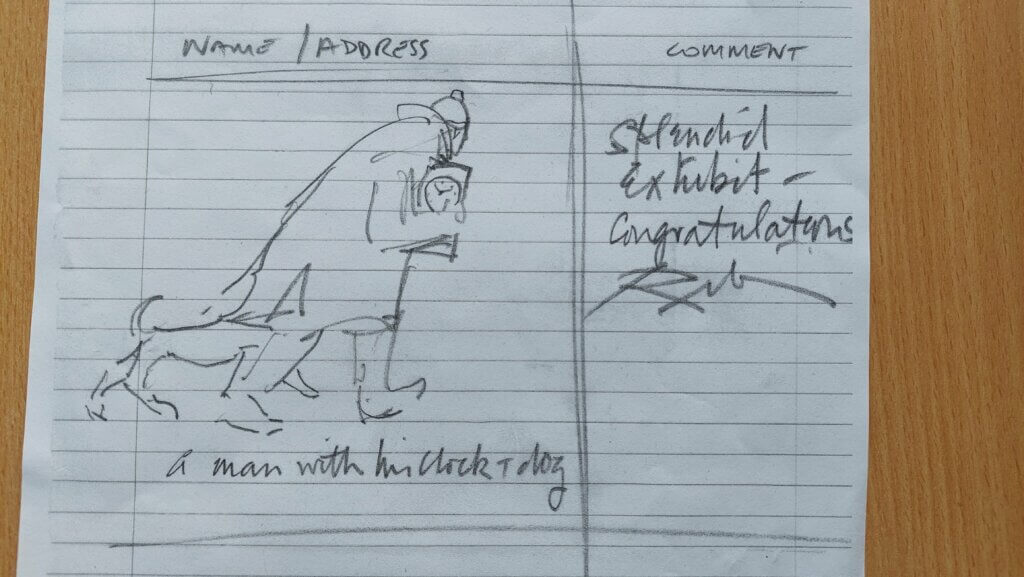 NAME / ADDRESS
COMMENT
Splendid
Exhibit –
Congratulations
a man with his clock + dog